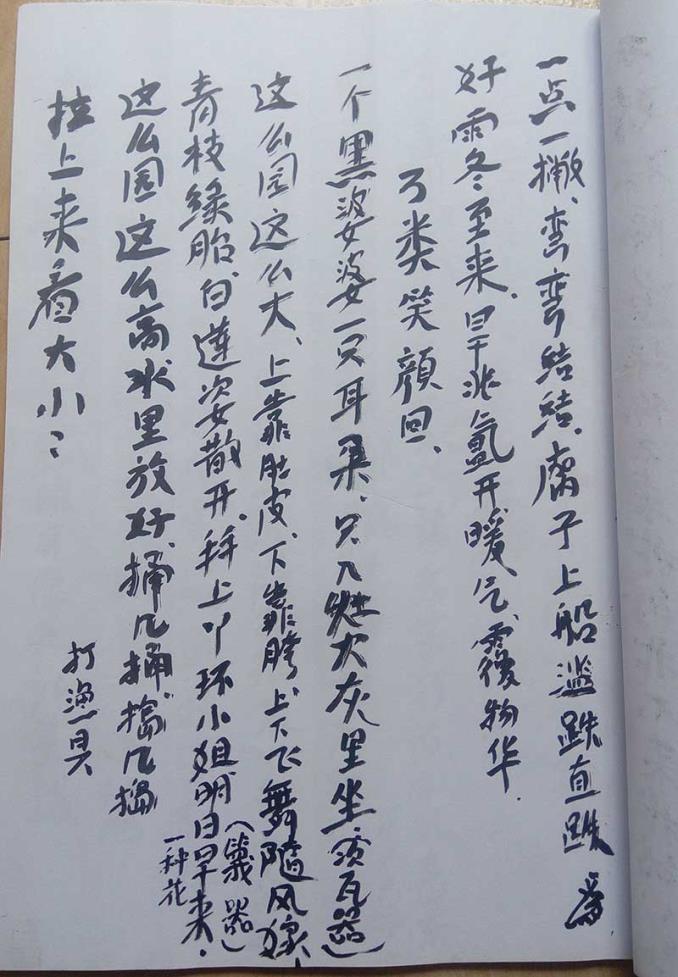 一点一撇、弯弯结结、腐子上船滥跌直跌 为
好雪冬至来、早兆氲开暖气霞物华.
了类笑颜回、
一个黑婆婆一只耳朵、只入灶火灰里坐、(烫瓦器)
这么园这么大、上靠肚皮、下靠胯、上下飞舞随风搧、(簸器)
青枝绿胎白莲姿散开、释上丫环小姐明日早来. 一种花
这么园这么高水里放好、捅几捅、搞几搞
拉上来看大小：
打渔具